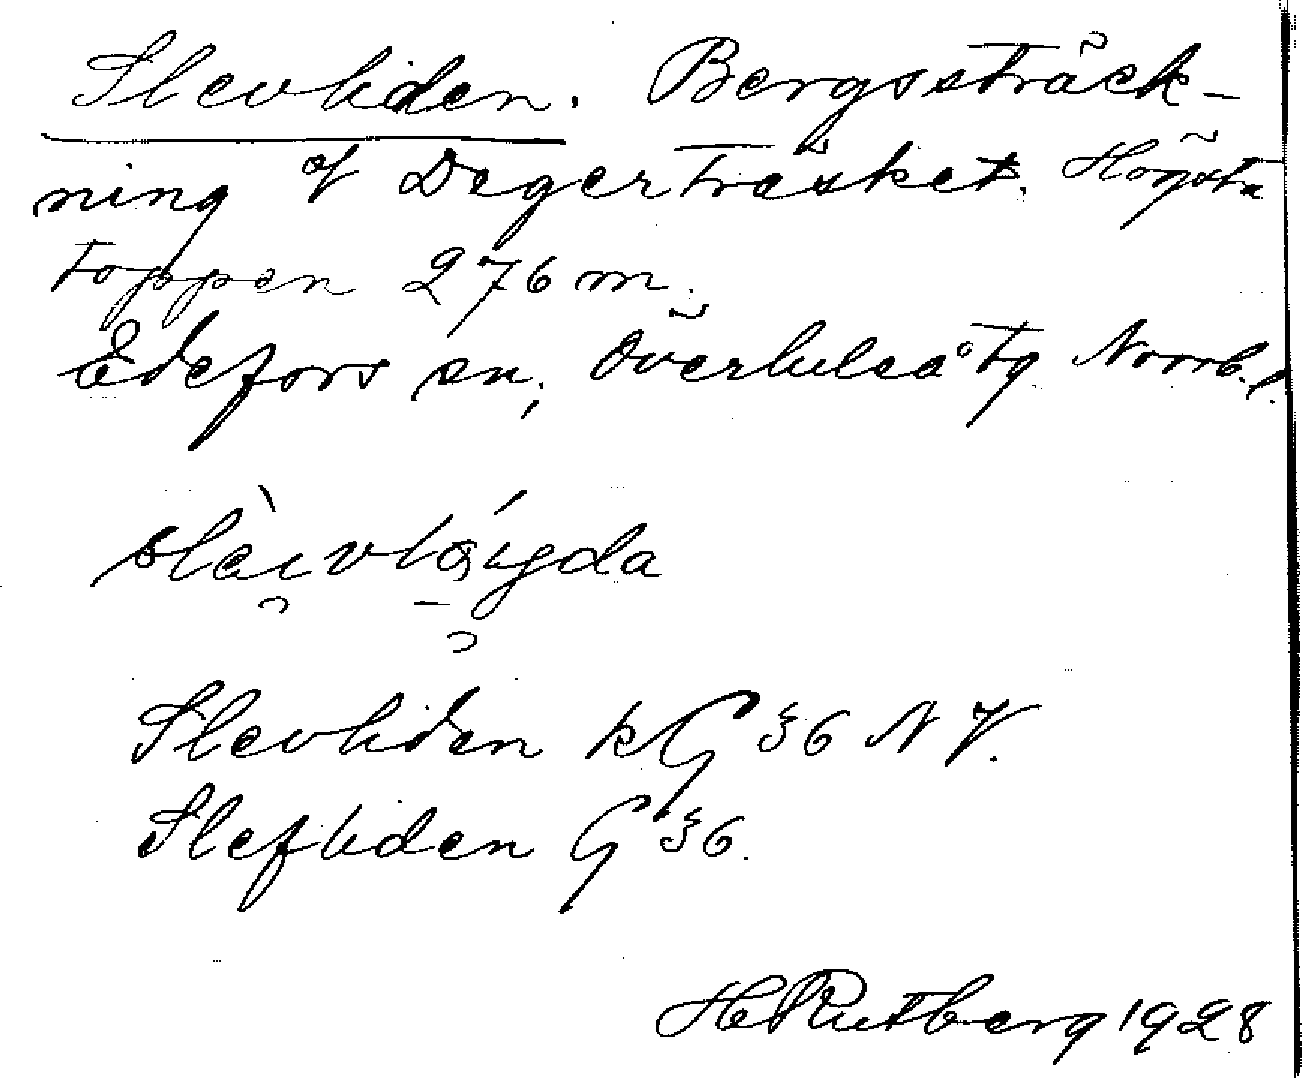 Slevliden. Bergssträck-
ning af Degerträsket. Högsta
toppen 276 m.
Edefors sn, Överluleå tg Norrb. l.
Slevliden kG 36 NV.
Slefliden G 36.
H Rutberg 1928